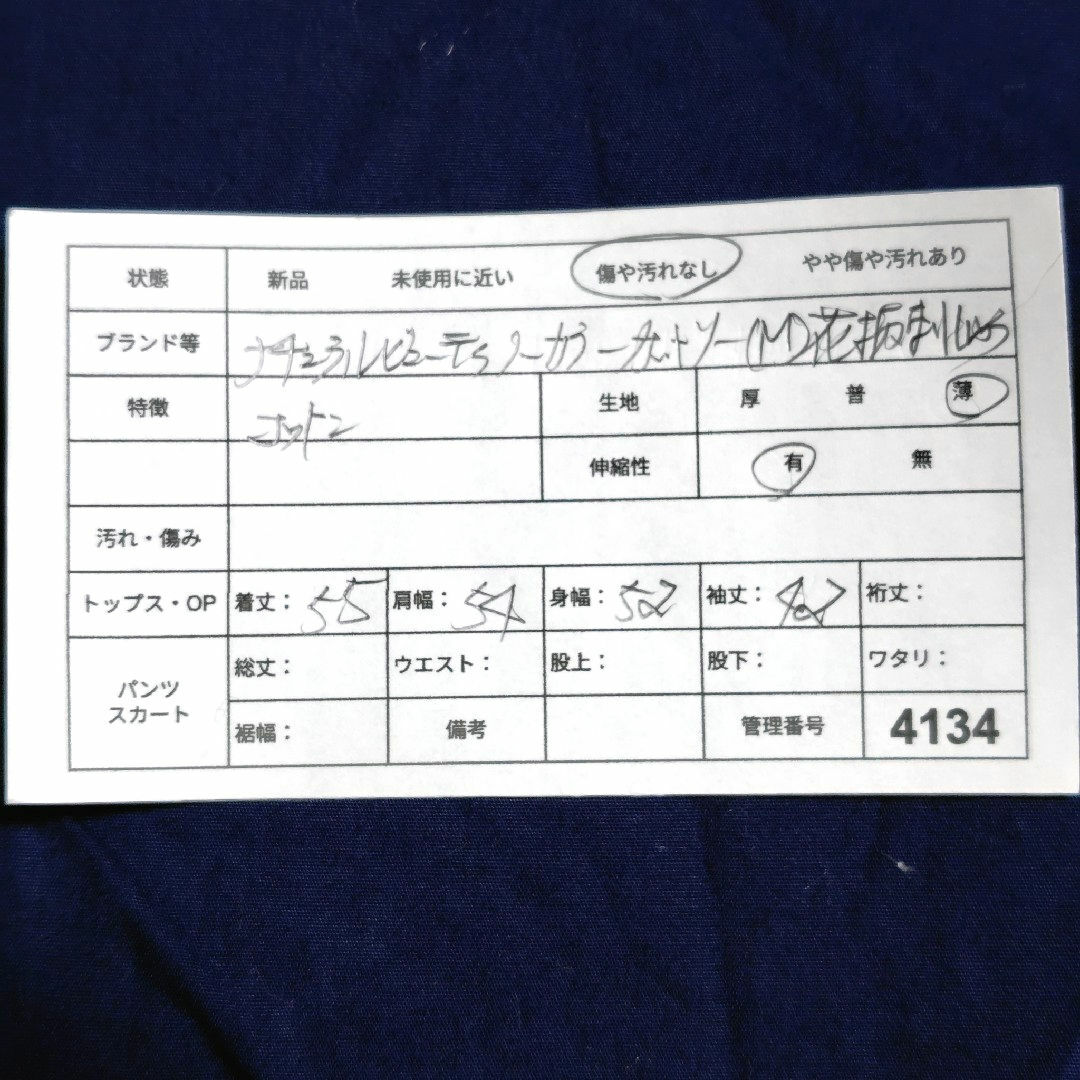 状態 新品 未使用に近い 傷や汚れなし やや傷や汚れあり
ブランド等 ナチュラルビューティ ノーカラー カットソー (M)花
特徴 コットン 生地 厚 普 薄
伸縮性 有 無
汚れ・傷み
トップス・OP 着丈：55 肩幅：54 身幅：52 袖丈：42 裄丈：
パンツ スカート 総丈： ウエスト： 股上： 股下： ワタリ：
裾幅： 備考 管理番号 4134